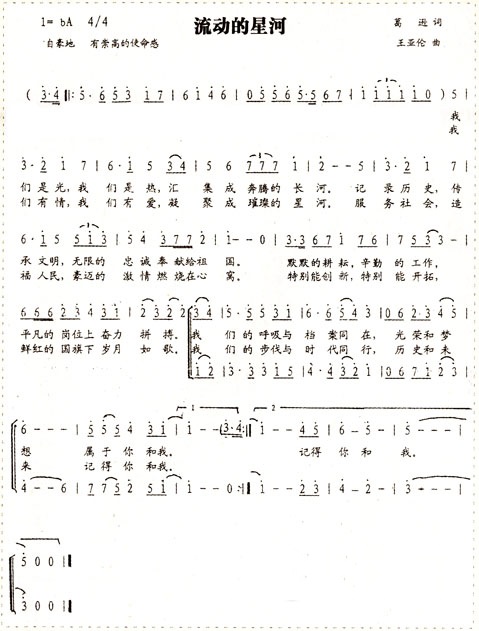 1=bA 4/4
流动的星河
葛逊词
自豪地 有崇高的使命感
王亚伦 曲
(3·4‖:5·653 17|6146|0556556 7|1 11110)5|
我
我
3·2 1 7|6·1 5 3 4|5 6 777 1|2--5|3·2 1 7|
们是光,我们是热,汇 集成奔腾的长河。记录历史,传
们有情,我们有爱,凝 聚成璀璨的星河。服务社会,造
6·15 513|54 3772|1--|03·2 131 76|7533-|
承文明,无限的 忠诚奉献给祖国。 默默的耕耘,辛勤的工作,
福人民,豪迈的 激情燃烧在心窝。 特别能创新,特别能开拓,
666 23 431|2322 34|5·5531|1·6543|062·345|
平凡的岗位上奋力 拼搏。我 们的呼吸与 档案同在,光荣和梦
鲜红的国旗下岁月 如歌。我 们的步伐与 时代同行,历史和未
12|3·3315|4·4322|067123|
1 2
6--5|5554 31|1--(3·4:‖1--45|6-5-|5---|
想 属于你和我。 记得你和 我。
来 记得你和我。
4--6|7752 51|1--0:‖1--23|4-2-|3---|
500‖
300‖